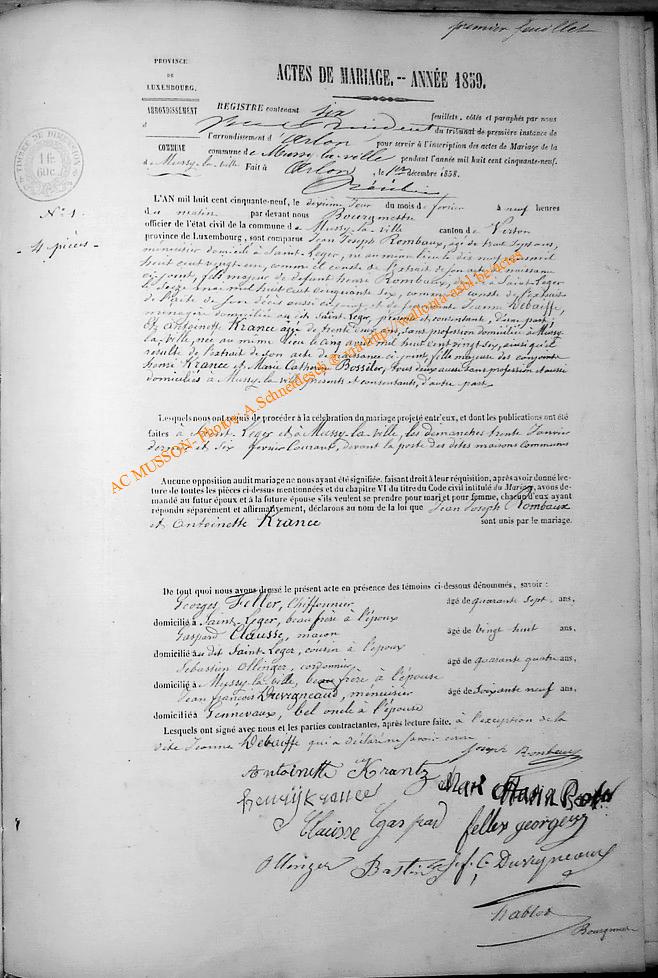 premier feuillet
PROVINCE
DE
LUXEMBOURG.
ACTES DE MARIAGE. -- ANNÉE 1859.
ARRONDISSEMENT
d
COMMUNE
de Mussy-la-ville
N° 1.
4 pièces
TIMBRE DE DIMENSION
REGISTRE contenant six feuillets, côtés et paraphés par nous
du tribunal de première instance de
l'arrondissement d'Arlon pour servir à l'inscription des actes de Mariage de la
commune de Mussy-la-ville pendant l'année mil huit cent cinquante-neuf.
Fait à Arlon, le 1er décembre 1858.
L'AN mil huit cent cinquante-neuf, le dixième jour du mois de février à neuf heures
du matin par devant nous Bourgmestre
officier de l'état civil de la commune de Mussy-la-ville canton de Virton
province de Luxembourg, sont comparus Jean Joseph Rombaux, âgé de trente sept ans,
menuisier domicilié à Saint-Léger, né au même lieu le dix neuf mil
huit cent vingt un, comme il conste de l'extrait de son acte de naissance
ci-joint, fils majeur de defunt henri Rombaux, décédé à Saint Leger
le seize mai mil huit cent cinquante six, comme il conste de l'extrait
de l'acte de son décès aussi ci-joint et de Jeanne Debaiffe,
ménagère domiciliée au dit Saint Leger, présente et consentante, d'une part;
Et Antoinette Krance âgée de trente deux ans, sans profession domiciliée à Mussy-
la-ville, née au même lieu le cinq mil huit cent vingt six, ainsi qu'il
resulte de l'extrait de son acte de naissance ci-joint fille majeure des conjoints
henri Krance et Marie Catherine Bossiler, tous deux aussi sans profession et aussi
domiciliés à Mussy-la-ville presents et consentants, d'autre part.
Lesquels nous ont requis de procéder à la célébration du mariage projeté entr'eux, et dont les publications ont été
faites à Saint-Leger et à Mussy-la-ville, les dimanches trente Janvier
dernier et six février courant, devant la porte des dites maisons communes
Aucune opposition audit mariage ne nous ayant été signifiée, faisant droit à leur réquisition, après avoir donné lec-
ture de toutes les pièces ci-dessus mentionnées et du chapitre VI du titre du Code civil intitulé du Mariage, avons de-
mandé au futur époux et à la future épouse s'ils veulent se prendre pour mari et pour femme, chacun d'eux ayant
répondu séparément et affirmativement, déclarons au nom de la loi que Jean Joseph Rombaux
et Antoinette Krance sont unis par le mariage.
De tout quoi nous avons dressé le présent acte en présence des témoins ci-dessous dénommés, savoir :
Georges Feller, Chiffonnier âgé de quarante sept ans.
domicilié à Saint-Leger, beau frère à l'époux
Gaspard Clausse, maçon âgé de vingt huit ans.
domicilié au dit Saint Leger, cousin à l'époux
Sébastien Ollinger, cordonnier âgé de quarante quatre ans.
domicilié à Mussy-la-ville, beau frère à l'épouse
Jean François Duvigneaud, menuisier âgé de soixante neuf ans.
domicilié à Gennevaux, bel oncle à l'épouse
Lesquels ont signé avec nous et les parties contractantes, après lecture faite, à l'exception de la
dite Jeanne Debaiffe qui a déclaré ne savoir écrire
Joseph Rombaux
Antoinette Krantz
henrij krances
Clausse Gaspard feller georges
Ollinger Bastin J. f. Duvigneaud
Bourgmestre
AC MUSSON- Photos: A. Schneidesch & via http://walloniia-asbl.be-actes